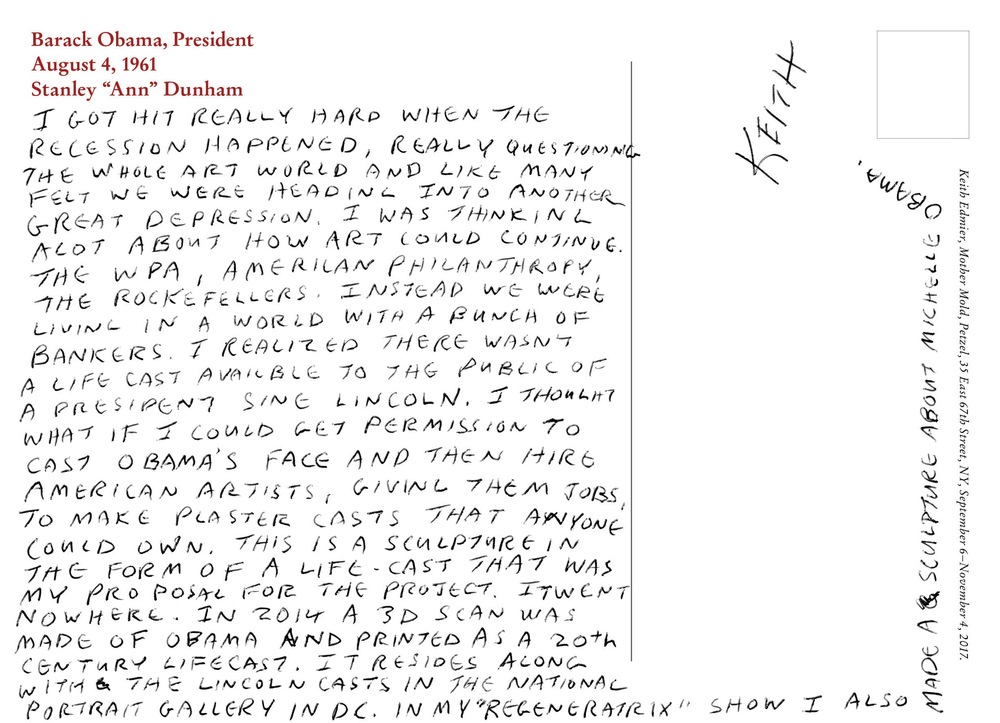 Barack Obama, President
August 4, 1961
Stanley “Ann” Dunham
I GOT HIT REALLY HARD WHEN THE
RECESSION HAPPENED, REALLY QUESTIONING
THE WHOLE ART WORLD AND LIKE MANY
FELT WE WERE HEADING INTO ANOTHER
GREAT DEPRESSION. I WAS THINKING
ALOT ABOUT HOW ART COULD CONTINUE.
THE WPA, AMERICAN PHILANTHROPY,
THE ROCKEFELLERS. INSTEAD WE WERE
LIVING IN A WORLD WITH A BUNCH OF
BANKERS. I REALIZED THERE WASNT
A LIFE CAST AVAILBLE TO THE PUBLIC OF
A PRESIDENT SINE LINCOLN. I THOUGHT
WHAT IF I COULD GET PERMISSION TO
CAST OBAMA'S FACE AND THEN HIRE
AMERICAN ARTISTS, GIVING THEM JOBS,
TO MAKE PLASTER CASTS THAT ANYONE
COULD OWN. THIS IS A SCULPTURE IN
THE FORM OF A LIFE-CAST THAT WAS
MY PROPOSAL FOR THE PROJECT. IT WENT
NOWHERE. IN 2014 A 3D SCAN WAS
MADE OF OBAMA AND PRINTED AS A 20th
CENTURY LIFECAST. IT RESIDES ALONG
WITH THE LINCOLN CASTS IN THE NATIONAL
PORTRAIT GALLERY IN DC. IN MY "REGENERATRIX" SHOW I ALSO
MADE A SCULPTURE ABOUT MICHELLE
OBAMA.
KEITH
Keith Edmier, Mother Mold, Petzel, 35 East 67th Street, NY, September 6–November 4, 2017.